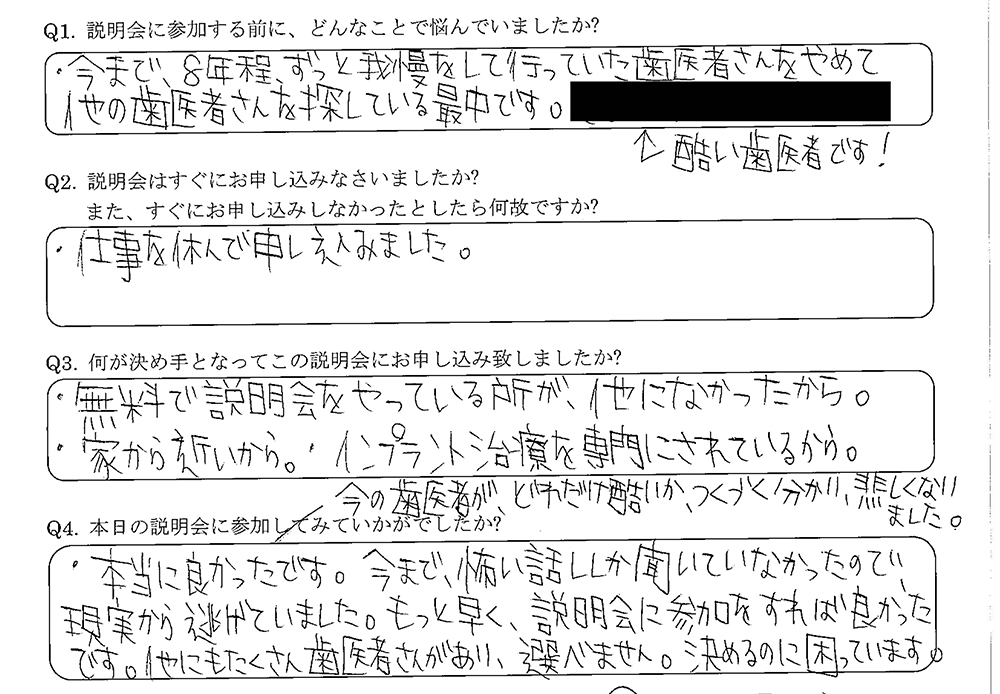 Q1. 説明会に参加する前に、どんなことで悩んでいましたか?
・今まで、8年程、ずっと我慢をして行っていた歯医者さんをやめて
他の歯医者さんを探している最中です。
↑酷い歯医者です!
Q2. 説明会はすぐにお申し込みなさいましたか?
また、すぐにお申し込みしなかったとしたら何故ですか?
・仕事を休んで申し込みました。
Q3. 何が決め手となってこの説明会にお申し込み致しましたか?
・無料で説明会をやっている所が、他になかったから。
・家から近いから。・インプラント治療を専門にされているから。
今の歯医者が、どれだけ酷いか、つくづく分かり、悲しくなり
ました。
Q4. 本日の説明会に参加してみていかがでしたか?
・本当に良かったです。今まで、怖い話ししか聞いていなかったので、
現実から逃げていました。もっと早く、説明会に参加をすれば良かった
です。他にもたくさん歯医者さんがあり、選べません。決めるのに困っています。